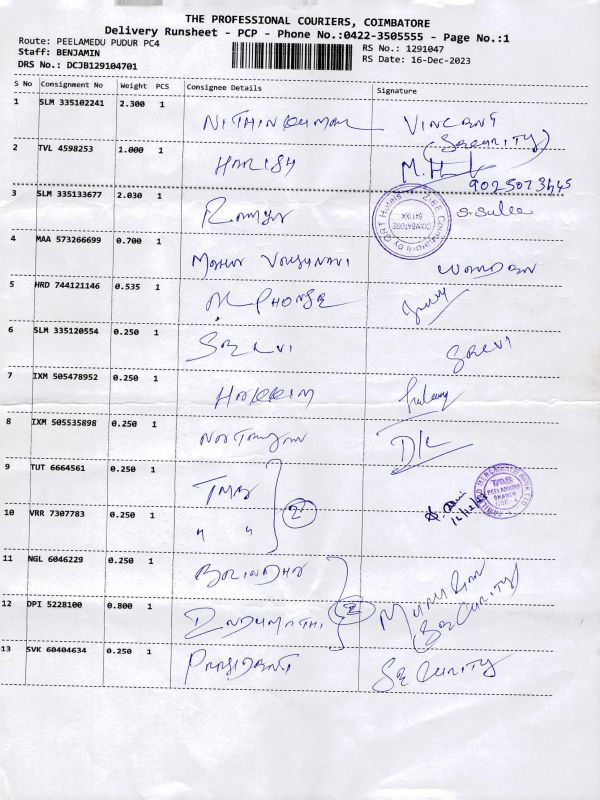 THE PROFESSIONAL COURIERS, COIMBATORE
Delivery Runsheet - PCP - Phone No.:0422-3505555 - Page No.:1
Route: PEELAMEDU PUDUR PC4
Staff: BENJAMIN
DRS No.: DCJB129104701
RS No.: 1291047
RS Date: 16-Dec-2023
S No Consignment No Weight PCS Consignee Details Signature
1 SLM 335102241 2.300 1 NITHINKUMAR VINCENT
(SECURITY)
2 TVL 4598253 1.000 1 HARISH M.H
9025073545
3 SLM 335133677 2.030 1 Ramya
4 MAA 573266699 0.700 1
5 HRD 744121146 0.535 1 ALPHONSE
6 SLM 335120554 0.250 1 SELVI SELVI
7 IXM 505478952 0.250 1
8 IXM 505535898 0.250 1
9 TUT 6664561 0.250 1 TMB
10 VRR 7307783 0.250 1 " " 2
16/12/23
11 NGL 6046229 0.250 1
12 DPI 5228100 0.800 1 INDUMATHI 2 MURUGAN
(SECURITY)
13 SVK 60404634 0.250 1 PRESIDENT SECURITY